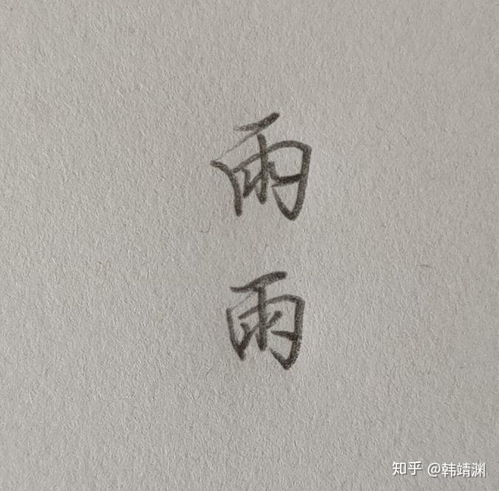 雨
雨
知乎 @韩靖渊